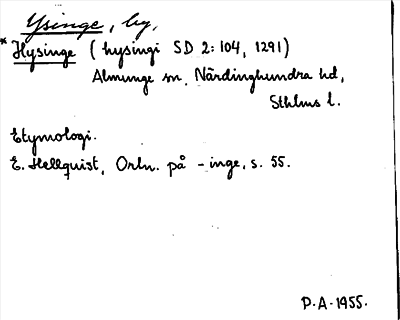 Ysinge, by,
* Hysinge (hysingi SD 2:104, 1291)
Almunge sn, Närdinghundra hd,
Sthlms l.
Etymologi.
E. Hellquist, Ortn. på -inge, s. 55.
P.A. 1955.